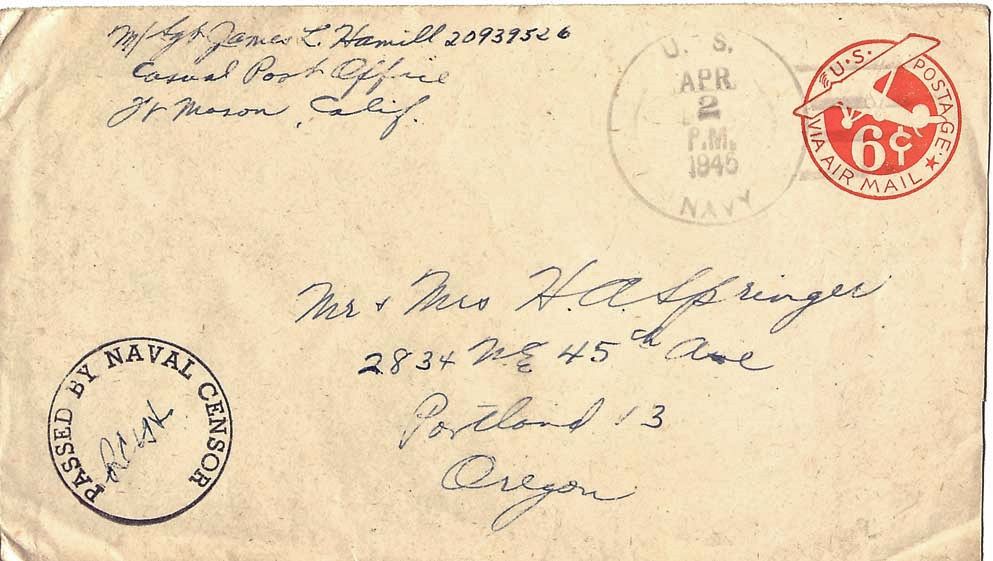 M/Sgt James L. Hamill 20939526
Casual Post Office
Ft Mason, Calif.
U. S.
APR
2
P.M.
1945
NAVY
U.S. POSTAGE
6¢
VIA AIR MAIL
Mr & Mrs H A Springer
2834 N.E 45th Ave
Portland 13
Oregon
PASSED BY NAVAL CENSOR